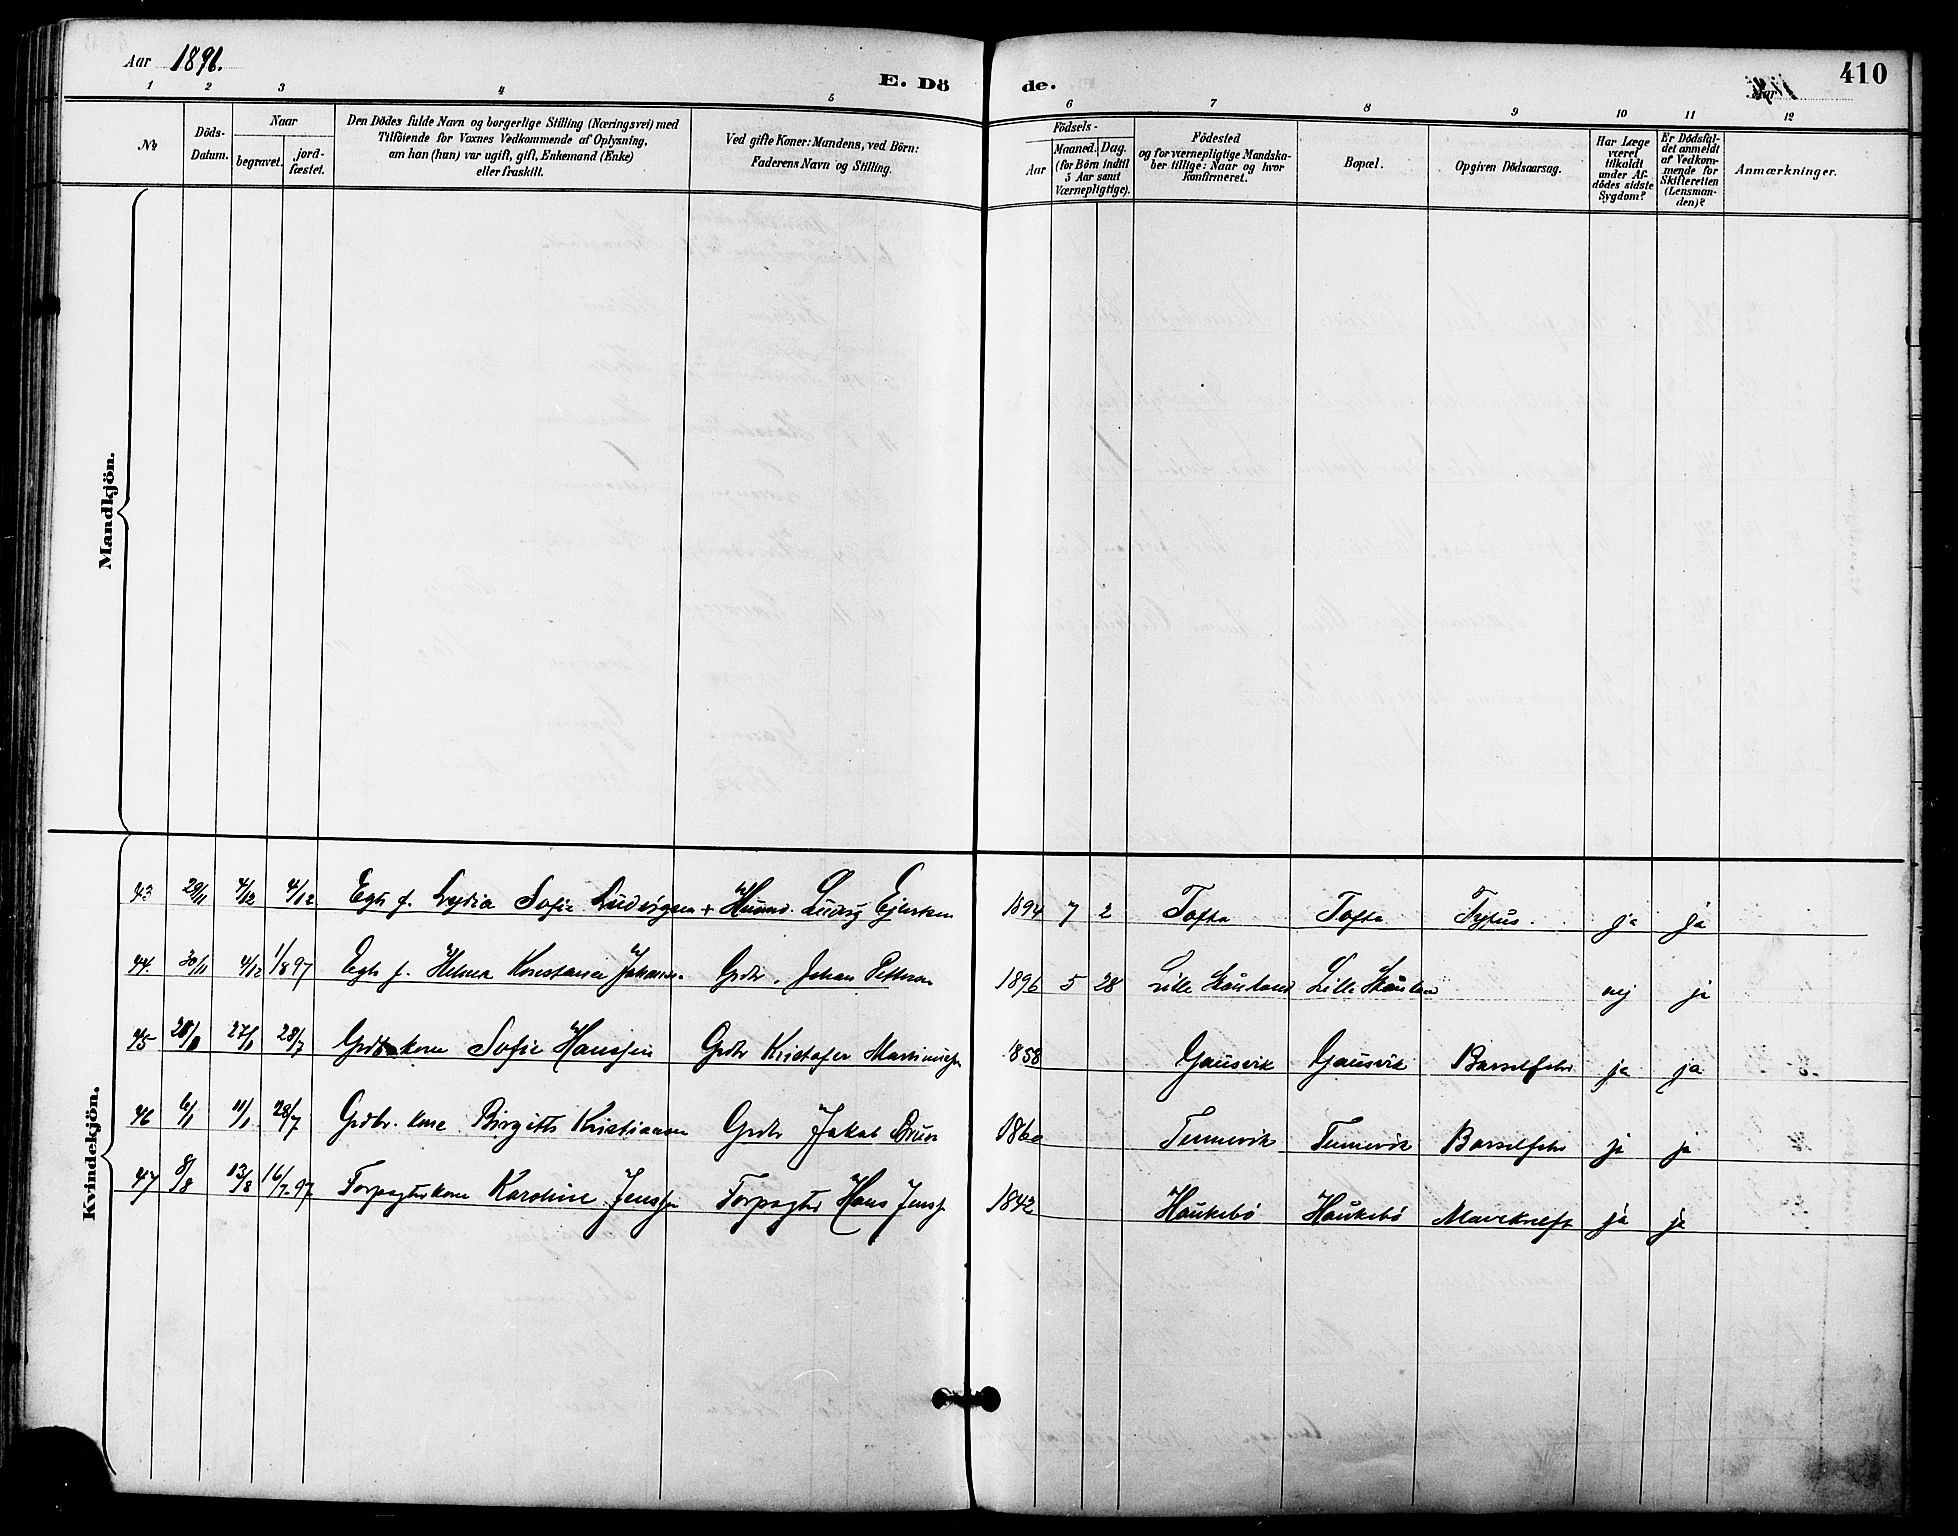 Aar 1896.
E. Dö de.
410
1 2 3 4 5 6 7 8 9 10 11 12
No
Döds-Datum.
Naar
begravet.
jord-fæstet.
Den Dödes fulde Navn og borgerlige Stilling (Næringsvei) med
Tilföiende for Voxnes Vedkommende af Oplysning,
om han (hun) var ugift, gift, Enkemand (Enke)
eller fraskilt.
Ved gifte Koner: Mandens, ved Börn:
Faderens Navn og Stilling.
Födsels-
Aar
Maaned. Dag.
(for Börn indtil
5 Aar samt
Værnepligtige).
Födested
og for værnepligtige Mandska-
ber tillige: Naar og hvor
konfirmeret.
Bopæl.
Opgiven Dödsaarsag.
Har Læge
været
tilkaldt
under Af-
dödes sidste
Sygdom?
Er Dödsfal-
det anmeldt
af Vedkom-
mende for
Skifteretten
(Lensman-
den)?
Anmærkninger.
Mandkjön.
Kvindekjön.
43 29/11 4/12 4/12 Egte f. Lydia Sofie Ludvigsen + Husmd. Ludvig Ejlertsen 1894 7 2 Tofta Tofta Tyfus. ja ja
44. 30/11 4/12 1/8 97 Egte f. Helma Konstance Johans. Grdbr. Johan Petterson 1896 5 28 Lille Skånland Lille Skånland nej ja
45 27/1 28/7 Grdbr kone Sofie Hanssen Grdbr Kristofer Martinussen 1858 Gausvik Gausvik Barselfeber ja ja
46 6/1 11/1 28/7 Grdbr. kone Birgitte Kristiansen Grdbr Jakob Bruun 1860 Tennevik Tennevik Barselfeber ja ja
47 8/8 13/8 16/7-97 Forpagterkone Karoline Jenssen Forpagter Hans Jenss. 1842 Haukebö Haukebö Mavekræft ja ja